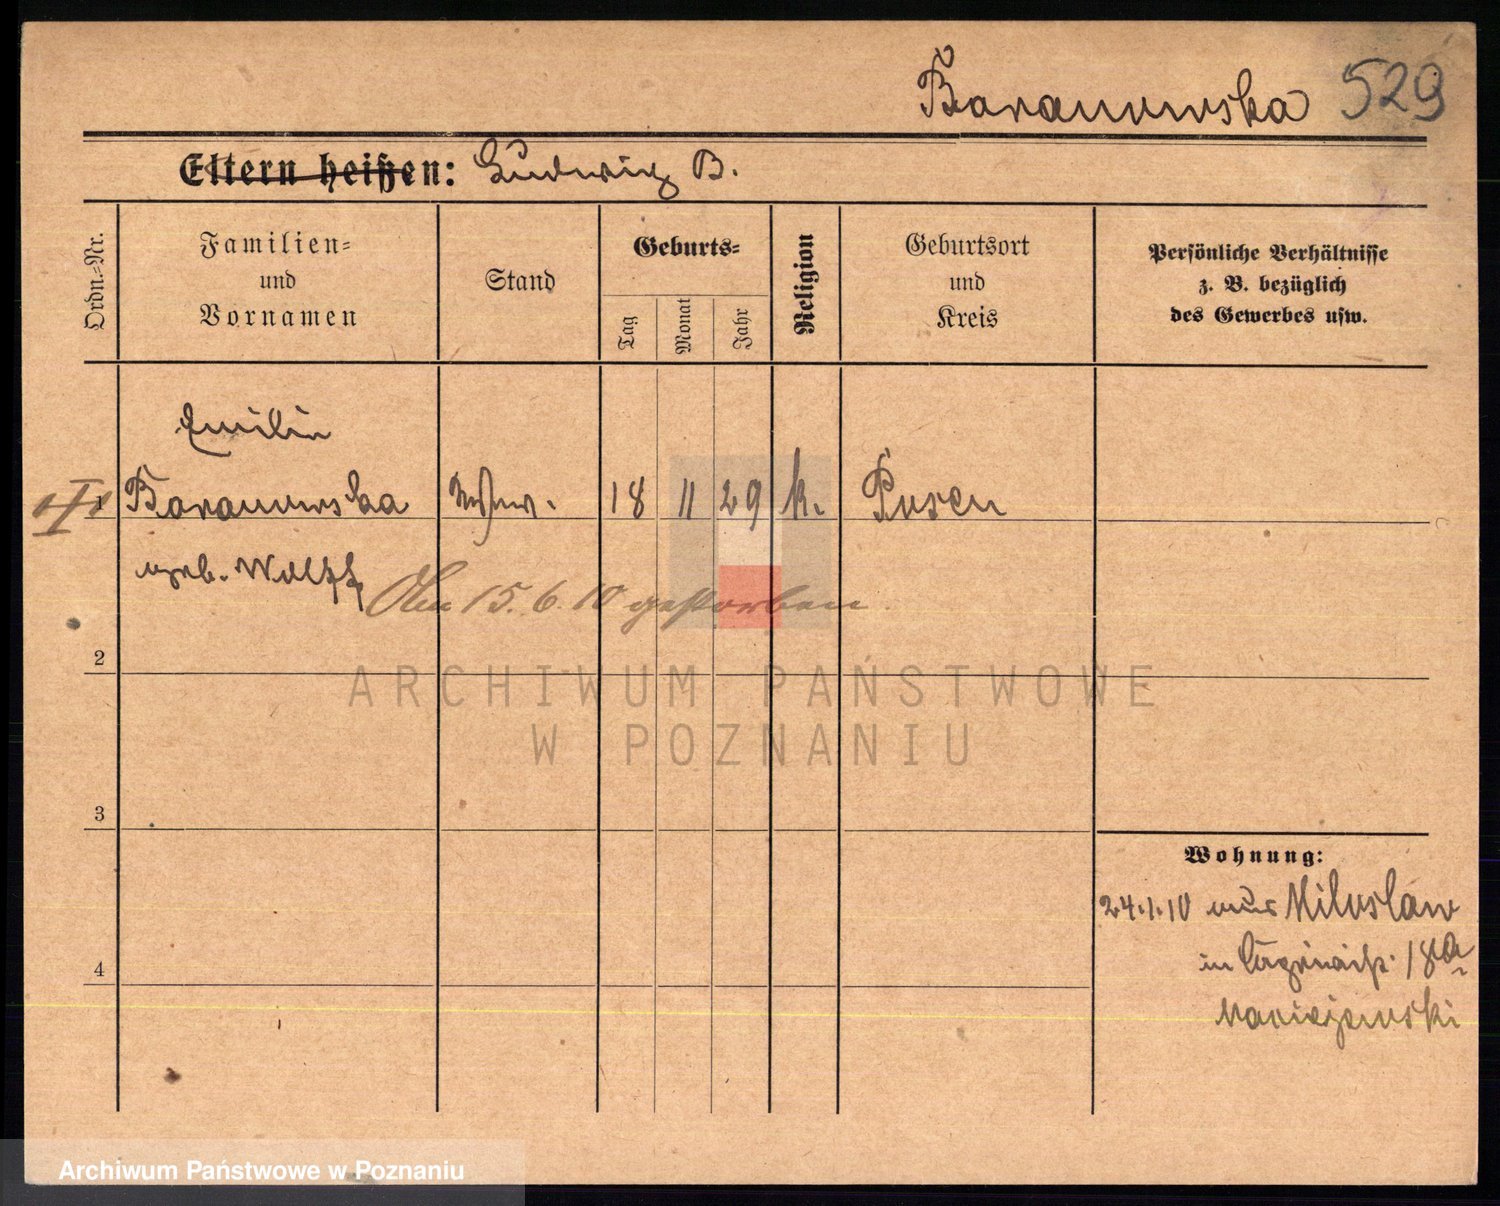 Baranowska 529
Eltern heißen: Ludwig B.
Ordn.=Nr.
Familien=
und
Vornamen
Stand
Geburts=
Tag
Monat
Jahr
Religion
Geburtsort
und
Kreis
Persönliche Verhältnisse
z. B. bezüglich
des Gewerbes usw.
Emilie
1 Baranowska 18 11 29 k. Posen
geb. Wolff
Am 15.6.10 gestorben.
2
3
4
Wohnung:
24.1.10 aus Miloslaw
in 18a
Maciejewski
ARCHIWUM PAŃSTWOWE
W POZNANIU
Archiwum Państwowe w Poznaniu